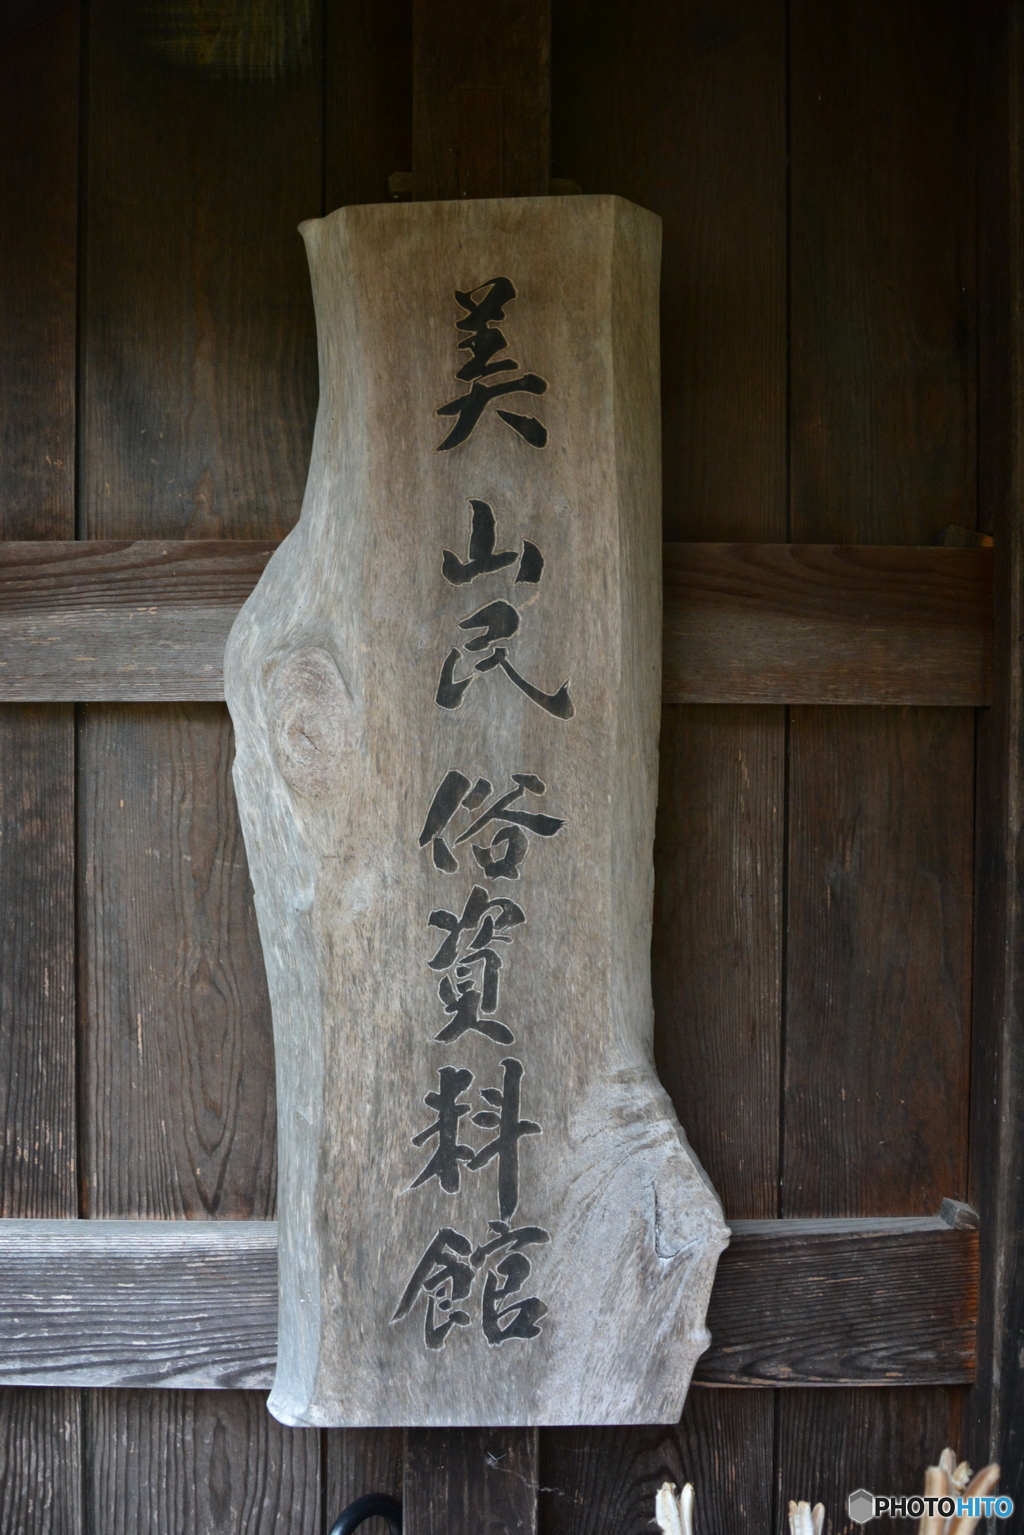 美山民俗資料館
PHOTOHITO